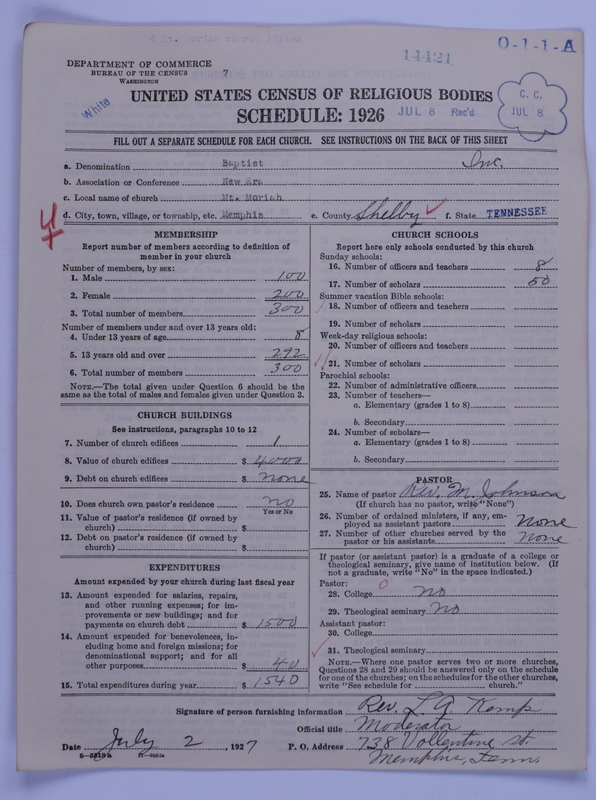 14421
O-1-1-A
DEPARTMENT OF COMMERCE
BUREAU OF THE CENSUS
WASHINGTON
7
White
UNITED STATES CENSUS OF RELIGIOUS BODIES
SCHEDULE: 1926
JUL 8 Rec'd
C. C.
JUL 8
FILL OUT A SEPARATE SCHEDULE FOR EACH CHURCH. SEE INSTRUCTIONS ON THE BACK OF THIS SHEET
a. Denomination Baptist Inc.
b. Association or Conference New Era
c. Local name of church Mt. Moriah
d. City, town, village, or township, etc. Memphis e. County Shelby f. State TENNESSEE
MEMBERSHIP
Report number of members according to definition of
member in your church
Number of members, by sex:
1. Male 100
2. Female 200
3. Total number of members 300
Number of members under and over 13 years old:
4. Under 13 years of age 8
5. 13 years old and over 292
6. Total number of members 300
NOTE.—The total given under Question 6 should be the
same as the total of males and females given under Question 3.
CHURCH BUILDINGS
See instructions, paragraphs 10 to 12
7. Number of church edifices 1
8. Value of church edifices $ 4000
9. Debt on church edifices $ none
10. Does church own pastor's residence no
Yes or No
11. Value of pastor's residence (if owned by
church) $
12. Debt on pastor's residence (if owned by
church) $
EXPENDITURES
Amount expended by your church during last fiscal year
13. Amount expended for salaries, repairs,
and other running expenses; for im-
provements or new buildings; and for
payments on church debt $ 1500
14. Amount expended for benevolences, in-
cluding home and foreign missions; for
denominational support; and for all
other purposes $ 40
15. Total expenditures during year $ 1540
CHURCH SCHOOLS
Report here only schools conducted by this church
Sunday schools:
16. Number of officers and teachers 8
17. Number of scholars 50
Summer vacation Bible schools:
18. Number of officers and teachers
19. Number of scholars
Week-day religious schools:
20. Number of officers and teachers
21. Number of scholars
Parochial schools:
22. Number of administrative officers
23. Number of teachers—
a. Elementary (grades 1 to 8)
b. Secondary
24. Number of scholars—
a. Elementary (grades 1 to 8)
b. Secondary
PASTOR
25. Name of pastor Rev. M. Johnson
(If church has no pastor, write "None")
26. Number of ordained ministers, if any, em-
ployed as assistant pastors None
27. Number of other churches served by the
pastor or his assistants None
If pastor (or assistant pastor) is a graduate of a college or
theological seminary, give name of institution below. (If
not a graduate, write "No" in the space indicated.)
Pastor:
28. College no
29. Theological seminary no
Assistant pastor:
30. College
31. Theological seminary
NOTE.—Where one pastor serves two or more churches,
Questions 28 and 29 should be answered only on the schedule
for one of the churches; on the schedules for the other churches,
write "See schedule for church."
Signature of person furnishing information Rev. L. A. Kemp
Official title Moderator
Date July 2, 1927 P. O. Address 738 Vollentine st.
Memphis, Tenn.